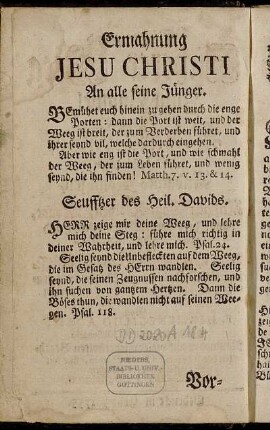 Ermahnung
JESU CHRISTI
An alle seine Jünger.
BEmühet euch hinein zu gehen durch die enge
Porten: dann die Port ist weit, und der
Weeg ist breit, der zum Verderben führet, und
ihrer seynd vil, welche dardurch eingehen.
Aber wie eng ist die Port, und wie schmahl
der Weeg, der zum Leben führet, und wenig
seynd, die ihn finden! Matth. 7. v. 13. & 14.
Seufftzer des Heil. Davids.
HERR zeige mir deine Weeg, und lehre
mich deine Steg: führe mich richtig in
deiner Wahrheit, und lehre mich. Psal. 24.
Seelig seynd die Unbefleckten auf dem Weeg,
die im Gesatz des HErrn wandlen. Seelig
seynd, die seinen Zeugnussen nachforschen, und
ihn suchen von gantzem Hertzen. Dann die
Böses thun, die wandlen nicht auf seinen Wee-
gen. Psal. 118.
NIEDERS.
STAATS-U. UNIV.-
BIBLIOTHEK
GÖTTINGEN
Vor-